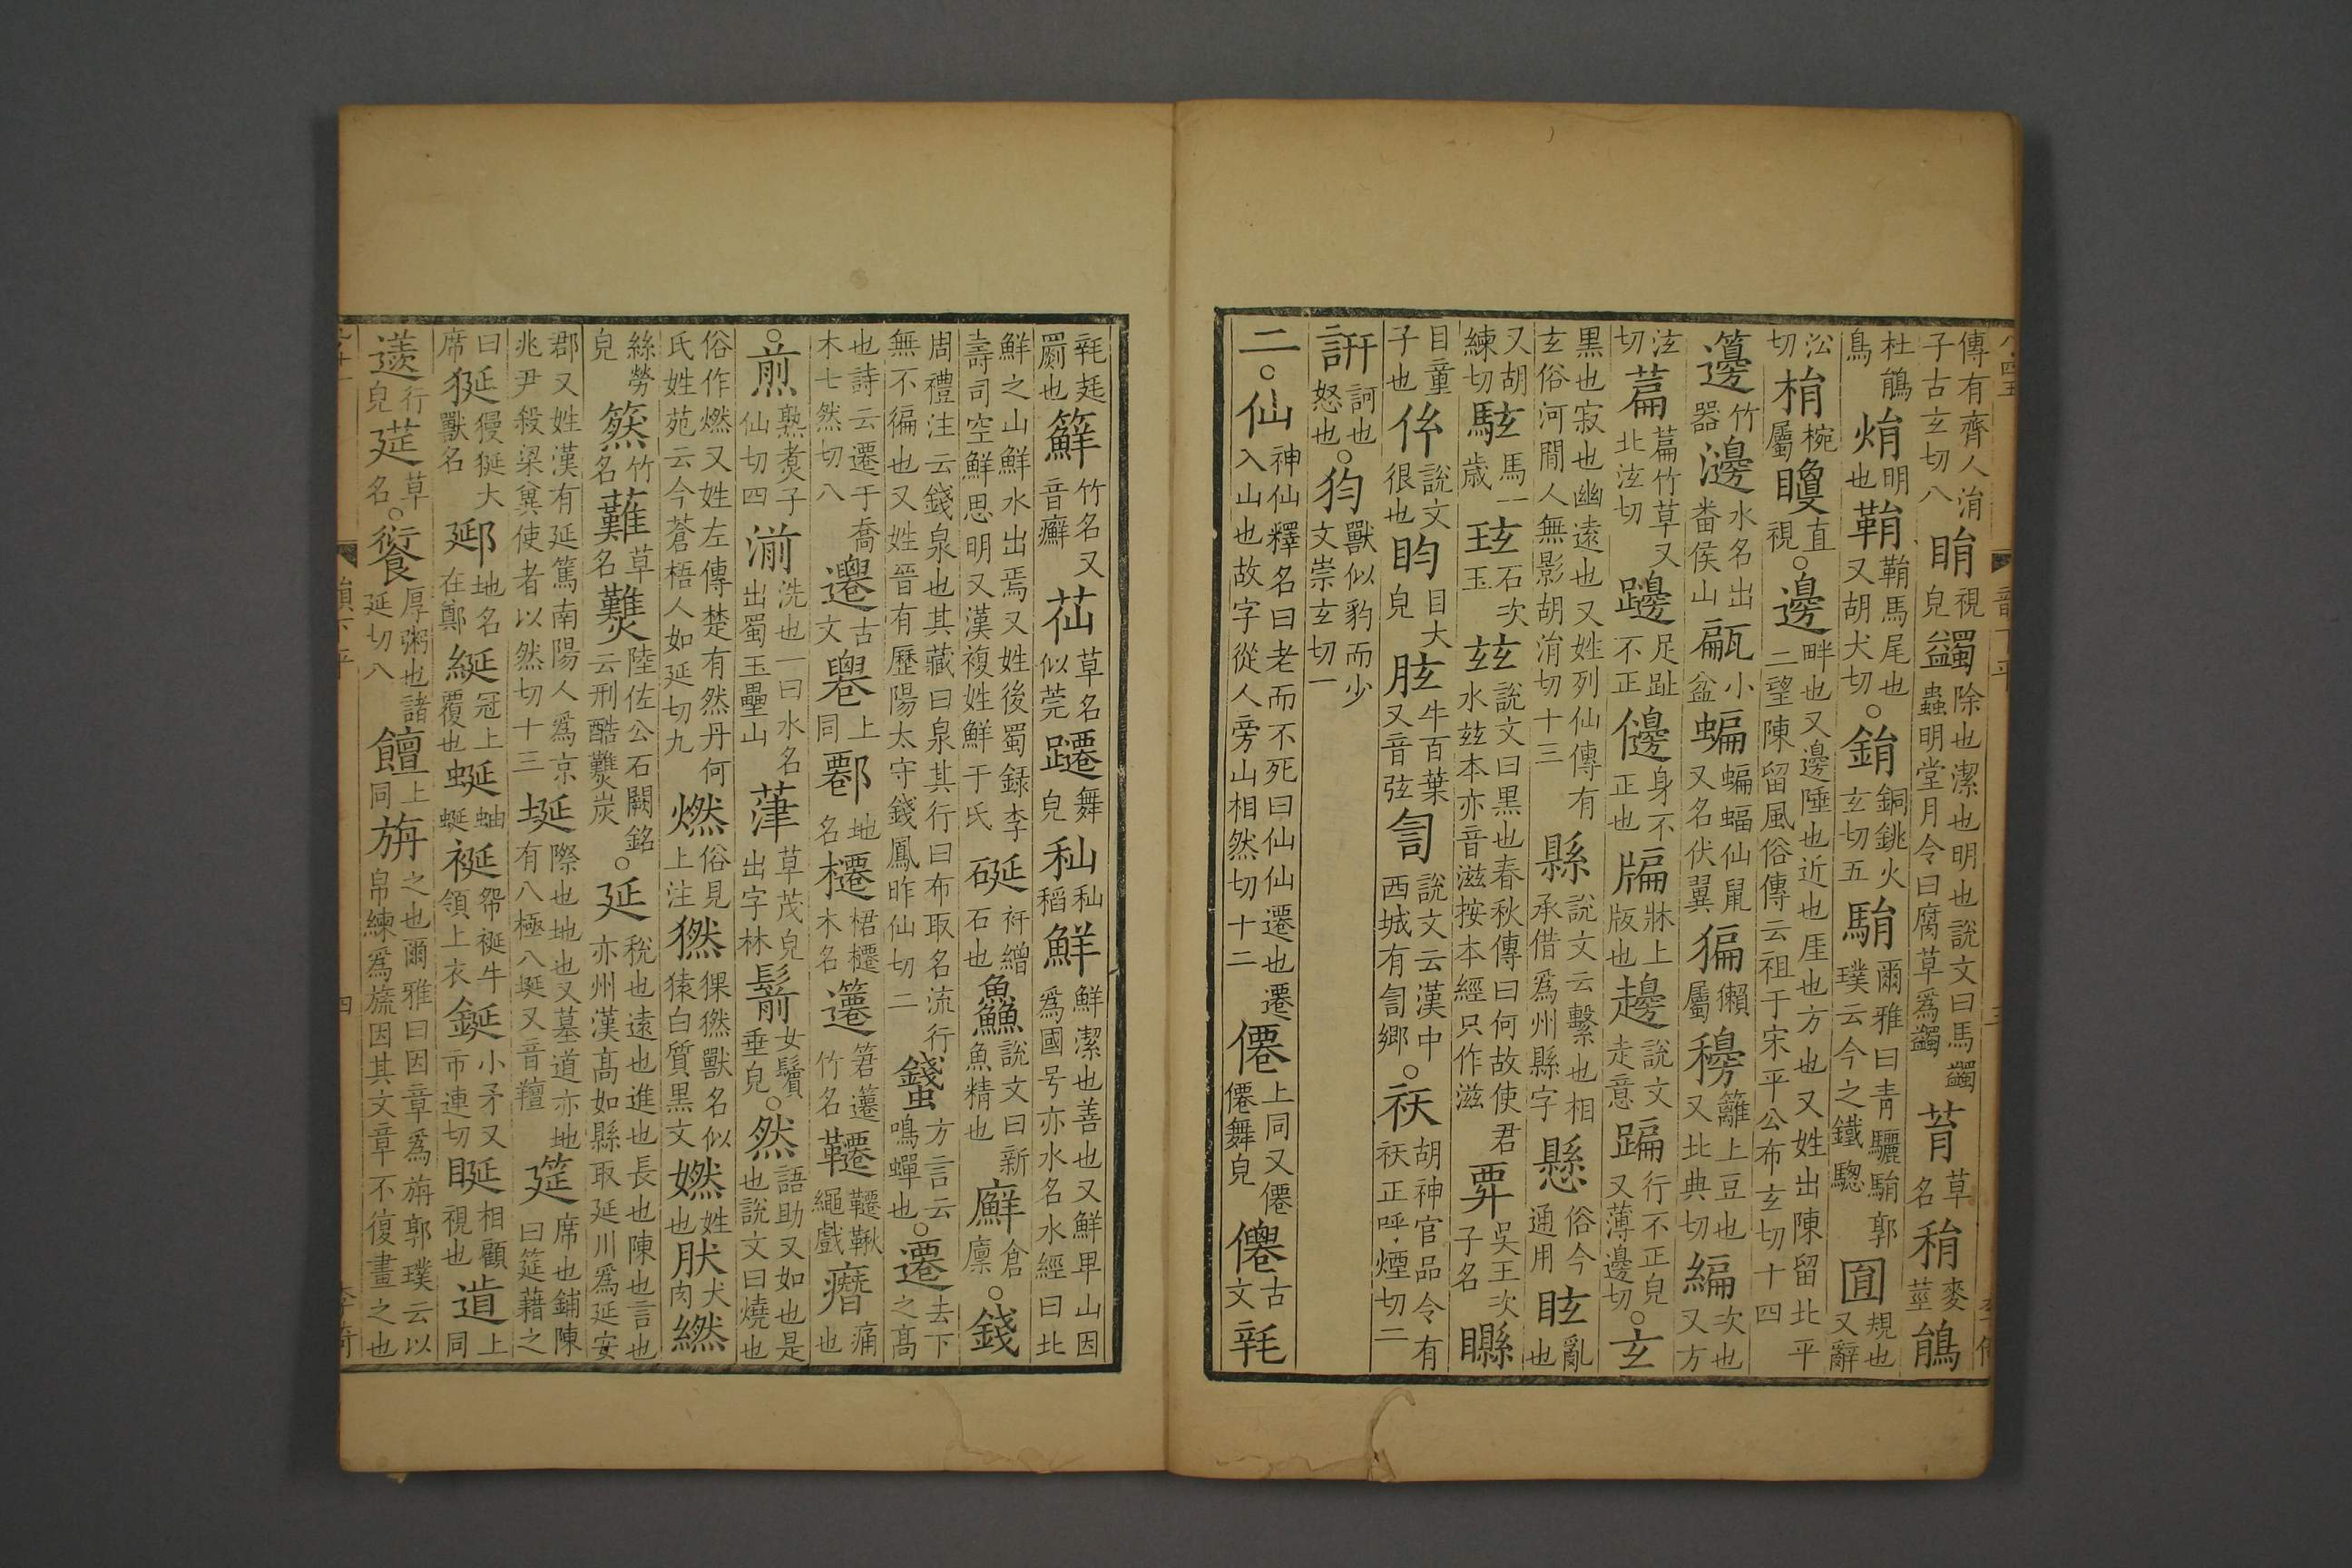 傳有齊人涓子古玄切八 睊視皃 蠲除也潔也明也說文曰馬蠲蟲明堂月令曰腐草爲蠲 草名 䅌麥莖 鵑
杜鵑鳥 焆明也 鞙鞙馬尾也又胡犬切 ○鋗銅銚火玄切五 駽爾雅曰青驪駽郭璞云今之鐵驄 㘣規也又辭
㳂切 梋椀屬 矎直視 ○邊畔也又邊陲也近也厓也方也又姓出陳留北平二望陳留風俗傳云祖于宋平公布玄切十四
籩竹器 水名出番侯山 甂小盆 蝙蝙蝠仙鼠又名伏翼 猵獺屬 籬上豆也又北典切 編次也又方
泫切 萹萹竹草又北泫切 足趾不正 身不正也 牑牀上版也 說文走意 蹁行不正皃又薄邊切 ○玄
黑也寂也幽遠也又姓列仙傳有玄俗河間人無影胡涓切十三 縣說文云繫也相承借爲州縣字 懸俗今通用 眩亂也
又胡練切 馬一歲 玹石次玉 玆說文曰黑也春秋傳曰何故使君水玆本亦音滋按本經只作滋 吳王次子名 矏
目童子也 伭說文很也 盷目大皃 胘牛百葉又音弦 訇說文云漢中西城有訇鄉 ○祆胡神官品令有祆正呼煙切二
訮訶也怒也 ○獸似豹而少文崇玄切一
二○仙神仙釋名曰老而不死曰仙仙遷也遷入山也故字從人旁山相然切十二 僊上同又僊僊舞皃 僲古文
罽也 䉳竹名又音癬 苮草名似莞 躚舞皃 秈秈稻 鮮鮮潔也善也又鮮卑山因爲國号亦水名水經曰北
鮮之山鮮水出焉又姓後蜀録李壽司空鮮思明又漢複姓鮮于氏 硟衦繒石也 鱻說文曰新魚精也 廯倉廩 ○錢
周禮注云錢泉也其藏曰泉其行曰布取名流行無不徧也又姓晉有歷陽太守錢鳳昨仙切二 方言云鳴蟬也 ○遷去下之高
也詩云遷于喬木七然切八 古文 䙴上同 地名 櫏㮋櫏木名 䉦䇬䉦竹名 韆韆鞦繩戲 痛也
○煎熟煑子仙切四 湔洗也一曰水名出蜀玉壘山 草茂皃出字林 鬋女鬢垂皃 ○然語助又如也是也說文曰燒也
俗作燃又姓左傳楚有然丹何氏姓苑云今蒼梧人如延切九 燃俗見上注 猓㹈獸名似猿白質黑文 姓也 肰犬肉 繎
絲勞皃 竹名 草名 陸佐公石闕銘云刑酷炭 ○延稅也遠也進也長也陳也言也亦州漢高如縣取延川爲延安
郡又姓漢有延篤南陽人爲京兆尹殺梁兾使者以然切十三 埏際也地也又墓道亦地有八極八埏又音羶 筵席也鋪陳曰筵藉之
曰筵席 狿獌狿大獸名 郔地名在鄭 綖冠上覆也 蜒蚰蜒 裷䘰牛領上衣 鋋小矛又市連切 䀽相顧視也 上同
行皃 莚草名 ○𩜾厚粥也諸延切八 饘上同 旃之也爾雅曰因章爲旃郭璞云以帛練爲旒因其文章不復畫之也